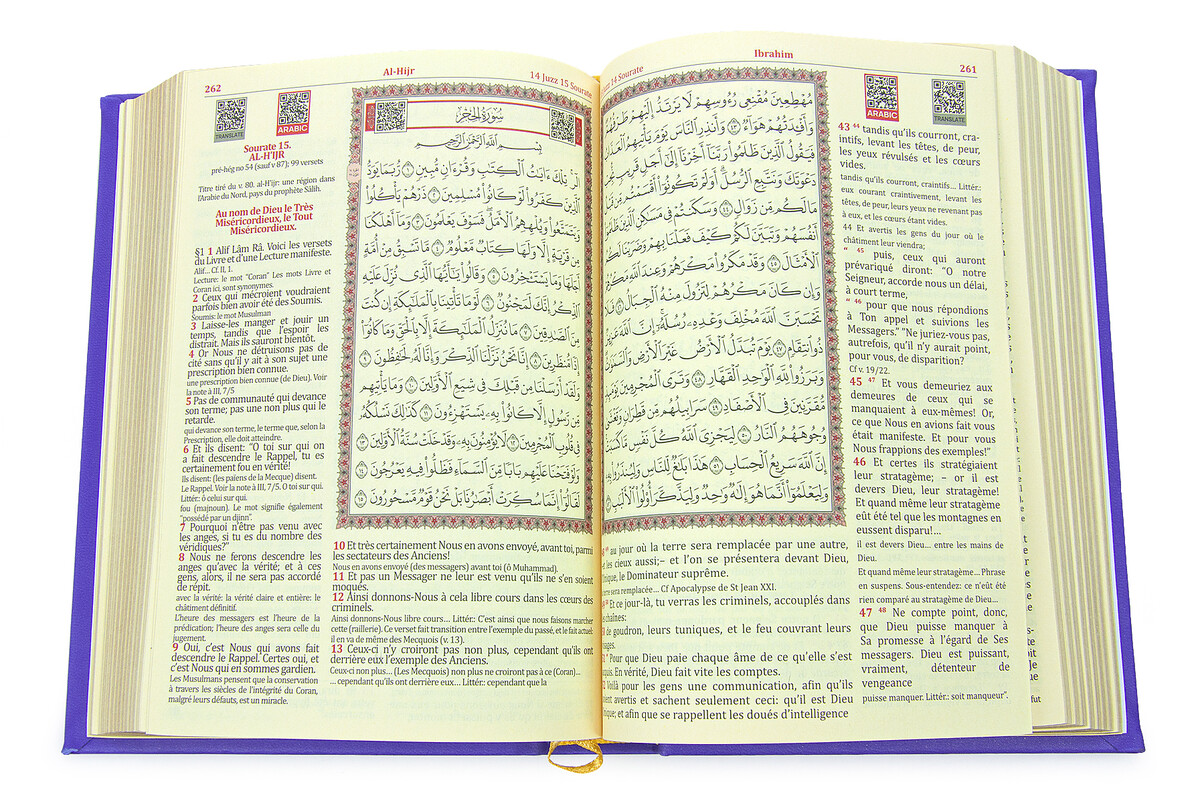 Ibrahim
261
14 Sourate
ARABIC
TRANSLATE
مُهْطِعِينَ مُقْنِعِى رُءُوسِهِمْ لَا يَرْتَدُّ إِلَيْهِمْ طَرْفُهُمْ
وَأَفْـِٔدَتُهُمْ هَوَآءٌ ٤٣ وَأَنذِرِ ٱلنَّاسَ يَوْمَ يَأْتِيهِمُ ٱلْعَذَابُ
فَيَقُولُ ٱلَّذِينَ ظَلَمُوا۟ رَبَّنَآ أَخِّرْنَآ إِلَىٰٓ أَجَلٍ قَرِيبٍ
دَعْوَتَكَ وَنَتَّبِعِ ٱلرُّسُلَ أَوَلَمْ تَكُونُوٓا۟ أَقْسَمْتُم
مَا لَكُم مِّن زَوَالٍ ٤٤ وَسَكَنتُمْ فِى مَسَـٰكِنِ ٱلَّذِينَ
أَنفُسَهُمْ وَتَبَيَّنَ لَكُمْ كَيْفَ فَعَلْنَا بِهِمْ وَضَرَبْنَا لَكُمُ
ٱلْأَمْثَالَ ٤٥ وَقَدْ مَكَرُوا۟ مَكْرَهُمْ وَعِندَ ٱللَّهِ مَكْرُهُمْ
وَإِن كَانَ مَكْرُهُمْ لِتَزُولَ مِنْهُ ٱلْجِبَالُ ٤٦
تَحْسَبَنَّ ٱللَّهَ مُخْلِفَ وَعْدِهِۦ رُسُلَهُۥٓ إِنَّ ٱللَّهَ عَزِيزٌ
ذُو ٱنتِقَامٍ ٤٧ يَوْمَ تُبَدَّلُ ٱلْأَرْضُ غَيْرَ ٱلْأَرْضِ وَٱلسَّمَـٰوَٰتُ
وَبَرَزُوا۟ لِلَّهِ ٱلْوَٰحِدِ ٱلْقَهَّارِ ٤٨ وَتَرَى ٱلْمُجْرِمِينَ
مُّقَرَّنِينَ فِى ٱلْأَصْفَادِ ٤٩ سَرَابِيلُهُم مِّن قَطِرَانٍ
وُجُوهَهُمُ ٱلنَّارُ ٥٠ لِيَجْزِىَ ٱللَّهُ كُلَّ نَفْسٍ مَّا كَسَبَتْ
إِنَّ ٱللَّهَ سَرِيعُ ٱلْحِسَابِ ٥١ هَـٰذَا بَلَـٰغٌ لِّلنَّاسِ وَلِيُنذَرُوا۟ بِهِۦ
وَلِيَعْلَمُوٓا۟ أَنَّمَا هُوَ إِلَـٰهٌ وَٰحِدٌ وَلِيَذَّكَّرَ أُو۟لُوا۟ ٱلْأَلْبَـٰبِ ٥٢
43 44 tandis qu'ils courront, cra-
intifs, levant les têtes, de peur,
les yeux révulsés et les cœurs
vides.
tandis qu'ils courront, craintifs... Littér.:
eux courant craintivement, levant les
têtes, de peur, leurs yeux ne revenant pas
à eux, et les cœurs étant vides.
44 Et avertis les gens du jour où le
châtiment leur viendra;
“ 45 puis, ceux qui auront
prévariqué diront: “O notre
Seigneur, accorde nous un délai,
à court terme,
“ 46 pour que nous répondions
à Ton appel et suivions les
Messagers.” “Ne juriez-vous pas,
autrefois, qu'il n'y aurait point,
pour vous, de disparition?
Cf v. 19/22.
45 47 Et vous demeuriez aux
demeures de ceux qui se
manquaient à eux-mêmes! Or,
ce que Nous en avions fait vous
était manifeste. Et pour vous
Nous frappions des exemples!”
46 Et certes ils stratégiaient
leur stratagème; – or il est
devers Dieu, leur stratagème!
Et quand même leur stratagème
eût été tel que les montagnes en
eussent disparu!...
il est devers Dieu... entre les mains de
Dieu.
Et quand même leur stratagème... Phrase
en suspens. Sous-entendez: ce n'eût été
rien comparé au stratagème de Dieu...
47 48 Ne compte point, donc,
que Dieu puisse manquer à
Sa promesse à l'égard de Ses
messagers. Dieu est puissant,
vraiment, détenteur de
vengeance
puisse manquer. Littér.: soit manqueur”.
49 au jour où la terre sera remplacée par une autre,
et les cieux aussi;– et l'on se présentera devant Dieu,
l'Unique, le Dominateur suprême.
terre sera remplacée... Cf Apocalypse de St Jean XXI.
Et ce jour-là, tu verras les criminels, accouplés dans
les chaînes:
de goudron, leurs tuniques, et le feu couvrant leurs
visages.
Pour que Dieu paie chaque âme de ce qu'elle s'est
acquis. En vérité, Dieu fait vite les comptes.
Voilà pour les gens une communication, afin qu'ils
soient avertis et sachent seulement ceci: qu'il est Dieu
unique; et afin que se rappellent les doués d'intelligence
262
Al-Hijr
14 Juzz 15 Sourate
TRANSLATE
ARABIC
Sourate 15.
AL-H'IJR
pré-hég no 54 (sauf v 87); 99 versets
Titre tiré du v. 80. al-H'ijr: une région dans
l'Arabie du Nord, pays du prophète Sâlih.
Au nom de Dieu le Très
Miséricordieux, le Tout
Miséricordieux.
§1 1 Alif Lâm Râ. Voici les versets
du Livre et d'une Lecture manifeste.
Alif... Cf. II, 1.
Lecture: le mot “Coran” Les mots Livre et
Coran ici, sont synonymes.
2 Ceux qui mécroient voudraient
parfois bien avoir été des Soumis.
Soumis: le mot Musulman
3 Laisse-les manger et jouir un
temps, tandis que l'espoir les
distrait. Mais ils sauront bientôt.
4 Or Nous ne détruisons pas de
cité sans qu'il y ait à son sujet une
prescription bien connue.
une prescription bien connue (de Dieu). Voir
la note à III, 7/5
5 Pas de communauté qui devance
son terme; pas une non plus qui le
retarde.
qui devance son terme, le terme que, selon la
Prescription, elle doit atteindre.
6 Et ils disent: “O toi sur qui on
a fait descendre le Rappel, tu es
certainement fou en vérité!
Ils disent: (les païens de la Mecque) disent.
Le Rappel. Voir la note à III, 7/5. O toi sur qui.
Littér.: ô celui sur qui.
fou (majnoun). Le mot signifie également
“possédé par un djinn”.
7 Pourquoi n'être pas venu avec
les anges, si tu es du nombre des
véridiques?”
8 Nous ne ferons descendre les
anges qu'avec la vérité; et à ces
gens, alors, il ne sera pas accordé
de répit.
avec la vérité: la vérité claire et entière: le
châtiment définitif.
L'heure des messagers est l'heure de la
prédication; l'heure des anges sera celle du
jugement.
9 Oui, c'est Nous qui avons fait
descendre le Rappel. Certes oui, et
c'est Nous qui en sommes gardien.
Les Musulmans pensent que la conservation
à travers les siècles de l'intégrité du Coran,
malgré leurs défauts, est un miracle.
سُورَةُ الْحِجْرِ
بِسْمِ ٱللَّهِ ٱلرَّحْمَـٰنِ ٱلرَّحِيمِ
الٓر تِلْكَ ءَايَـٰتُ ٱلْكِتَـٰبِ وَقُرْءَانٍ مُّبِينٍ ١ رُّبَمَا يَوَدُّ
ٱلَّذِينَ كَفَرُوا۟ لَوْ كَانُوا۟ مُسْلِمِينَ ٢ ذَرْهُمْ يَأْكُلُوا۟
وَيَتَمَتَّعُوا۟ وَيُلْهِهِمُ ٱلْأَمَلُ فَسَوْفَ يَعْلَمُونَ ٣ وَمَآ أَهْلَكْنَا
مِن قَرْيَةٍ إِلَّا وَلَهَا كِتَابٌ مَّعْلُومٌ ٤ مَّا تَسْبِقُ مِنْ أُمَّةٍ
أَجَلَهَا وَمَا يَسْتَـْٔخِرُونَ ٥ وَقَالُوا۟ يَـٰٓأَيُّهَا ٱلَّذِى نُزِّلَ عَلَيْهِ
ٱلذِّكْرُ إِنَّكَ لَمَجْنُونٌ ٦ لَّوْ مَا تَأْتِينَا بِٱلْمَلَـٰٓئِكَةِ إِن كُنتَ
مِنَ ٱلصَّـٰدِقِينَ ٧ مَا نُنَزِّلُ ٱلْمَلَـٰٓئِكَةَ إِلَّا بِٱلْحَقِّ وَمَا كَانُوٓا۟
إِذًا مُّنظَرِينَ ٨ إِنَّا نَحْنُ نَزَّلْنَا ٱلذِّكْرَ وَإِنَّا لَهُۥ لَحَـٰفِظُونَ ٩
وَلَقَدْ أَرْسَلْنَا مِن قَبْلِكَ فِى شِيَعِ ٱلْأَوَّلِينَ ١٠ وَمَا يَأْتِيهِم
مِّن رَّسُولٍ إِلَّا كَانُوا۟ بِهِۦ يَسْتَهْزِءُونَ ١١ كَذَٰلِكَ نَسْلُكُهُۥ
فِى قُلُوبِ ٱلْمُجْرِمِينَ ١٢ لَا يُؤْمِنُونَ بِهِۦ وَقَدْ خَلَتْ سُنَّةُ ٱلْأَوَّلِينَ ١٣
وَلَوْ فَتَحْنَا عَلَيْهِم بَابًا مِّنَ ٱلسَّمَآءِ فَظَلُّوا۟ فِيهِ يَعْرُجُونَ ١٤
لَقَالُوٓا۟ إِنَّمَا سُكِّرَتْ أَبْصَـٰرُنَا بَلْ نَحْنُ قَوْمٌ مَّسْحُورُونَ ١٥
10 Et très certainement Nous en avons envoyé, avant toi, parmi
les sectateurs des Anciens!
Nous en avons envoyé (des messagers) avant toi (ô Muhammad).
11 Et pas un Messager ne leur est venu qu'ils ne s'en soient
moqués.
12 Ainsi donnons-Nous à cela libre cours dans les cœurs des
criminels.
Ainsi donnons-Nous libre cours... Littér.: C'est ainsi que nous faisons marcher
cette (raillerie). Ce verset fait transition entre l'exemple du passé, et le fait actuel:
il en va de même des Mecquois (v. 13).
13 Ceux-ci n'y croiront pas non plus, cependant qu'ils ont
derrière eux l'exemple des Anciens.
Ceux-ci non plus... (Les Mecquois) non plus ne croiront pas à ce (Coran)...
... cependant qu'ils ont derrière eux... Littér.: cependant que la